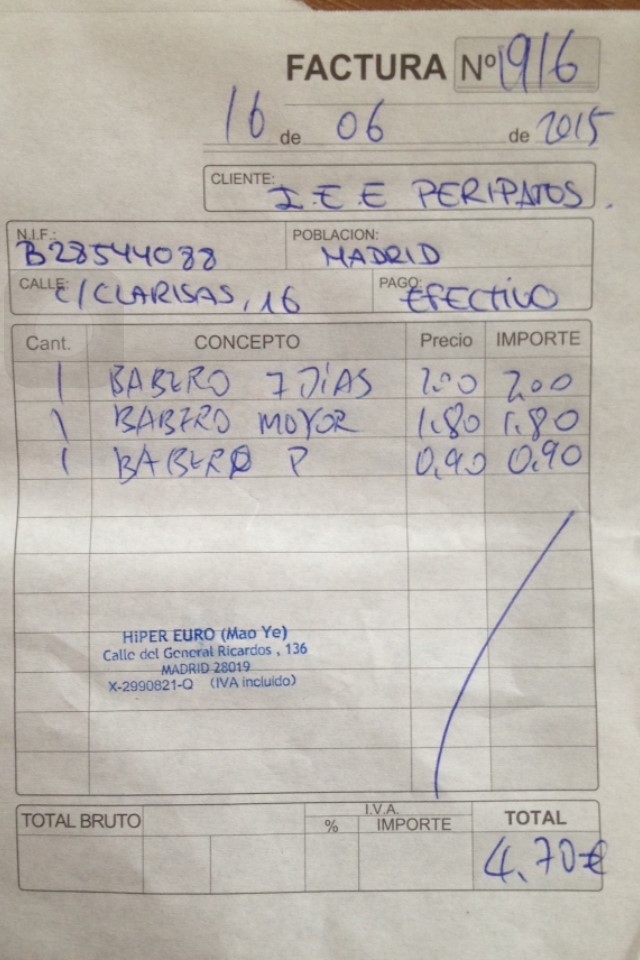 FACTURA Nº 1916
16 de 06 de 2015
CLIENTE: I.E.E PERIPATOS.
N.I.F.: B28544088 POBLACION: MADRID
CALLE: C/CLARISAS, 16 PAGO: EFECTIVO
Cant. CONCEPTO Precio IMPORTE
1 BABERO 7 DÍAS 2.00 2.00
1 BABERO MOYOR 1.80 1.80
1 BABERO P 0,90 0,90
HIPER EURO (Mao Ye)
Calle del General Ricardos , 136
MADRID 28019
X-2990821-Q (IVA incluido)
TOTAL BRUTO I.V.A. TOTAL
% IMPORTE
4.70€